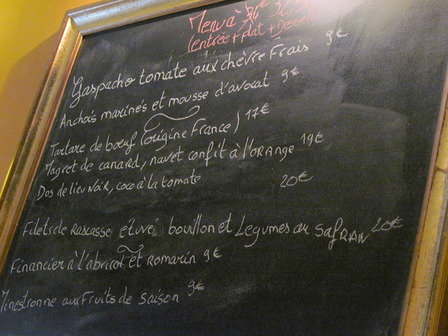 Menu à 34€
(entrée + plat + Dessert
Gaspacho tomate aux chèvre Frais 9€
Anchois marinés et mousse d'avocat 9€
Tartare de bœuf (origine France) 17€
Magret de canard, navet confit à l'orange 19€
Dos de lieu Noir, coco à la tomate 20€
Filets de Rascasse étuvé bouillon et Legumes au SafRAN 20€
Financier à l'abricot et Romarin 9€
Minestronne aux Fruits de Saison 9€